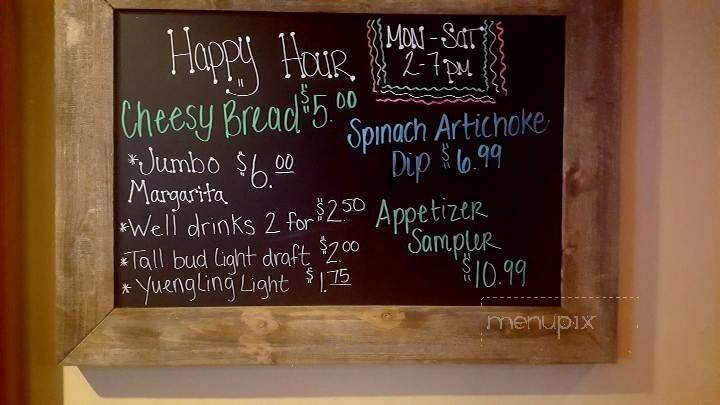 Happy Hour
MON-SAT
2-7pm
Cheesy Bread $5.00
*Jumbo $6.00
Margarita
*Well drinks 2 for $2.50
*Tall bud light draft $2.00
*Yuengling Light $1.75
Spinach Artichoke
Dip $6.99
Appetizer
Sampler
$10.99
menupix